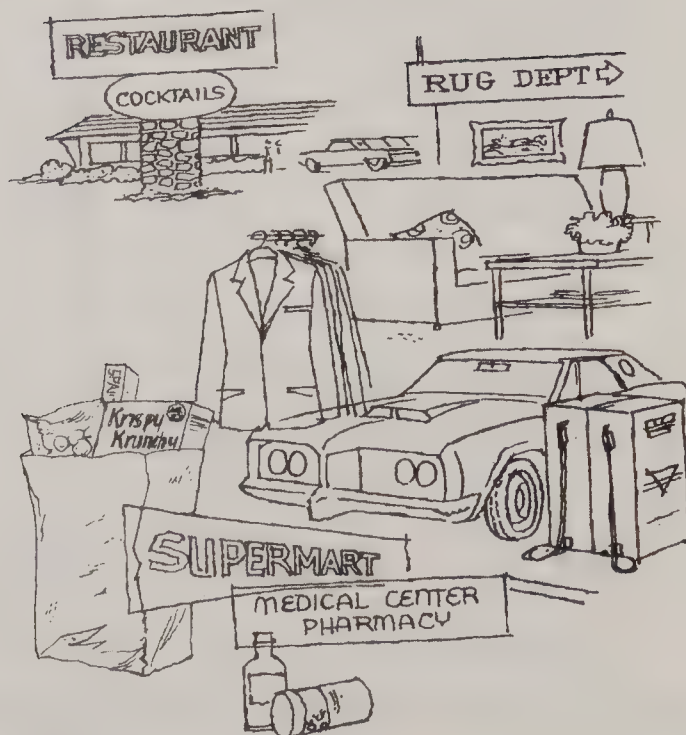 RESTAURANT
COCKTAILS
RUG DEPT
Krispy
Krunchy
SUPERMART
MEDICAL CENTER
PHARMACY